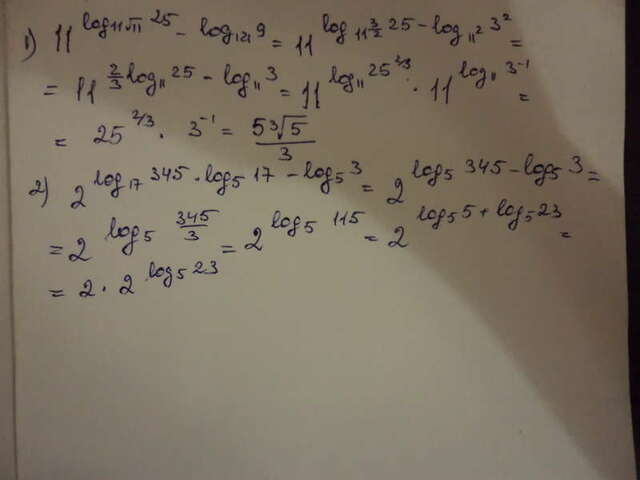 1) 11^(log_(11√11) 25 - log_121 9) = 11^(log_(11^(3/2)) 25 - log_(11^2) 3^2) =
= 11^(2/3 log_11 25 - log_11 3) = 11^(log_11 25^(2/3)) · 11^(log_11 3^(-1)) =
= 25^(2/3) · 3^(-1) = 5∛5/3
2) 2^(log_17 345 · log_5 17 - log_5 3) = 2^(log_5 345 - log_5 3) =
= 2^(log_5 345/3) = 2^(log_5 115) = 2^(log_5 5 + log_5 23) =
= 2 · 2^(log_5 23)